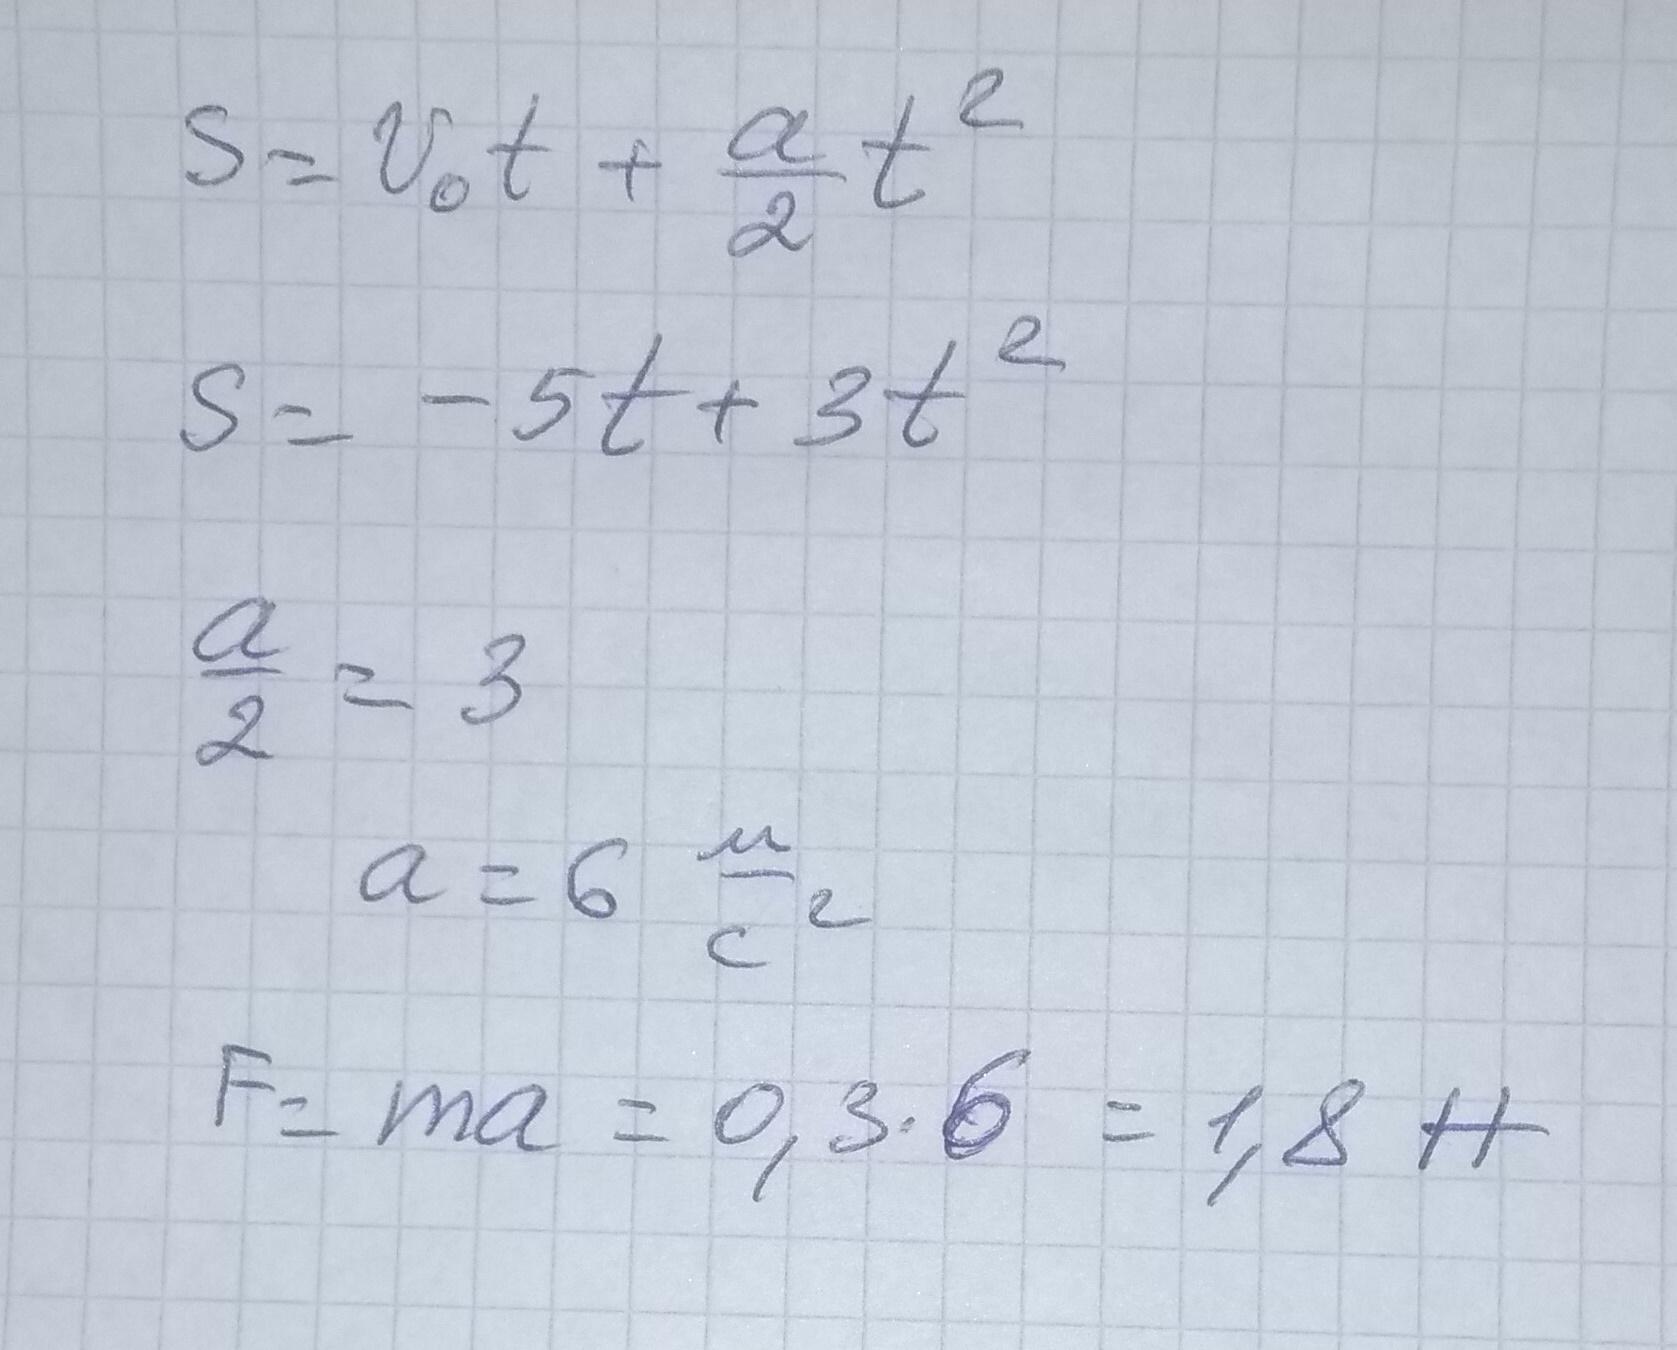 S = V₀t + a/2 t²
S = -5t + 3t²
a/2 = 3
a = 6 м/с²
F = ma = 0,3·6 = 1,8 Н